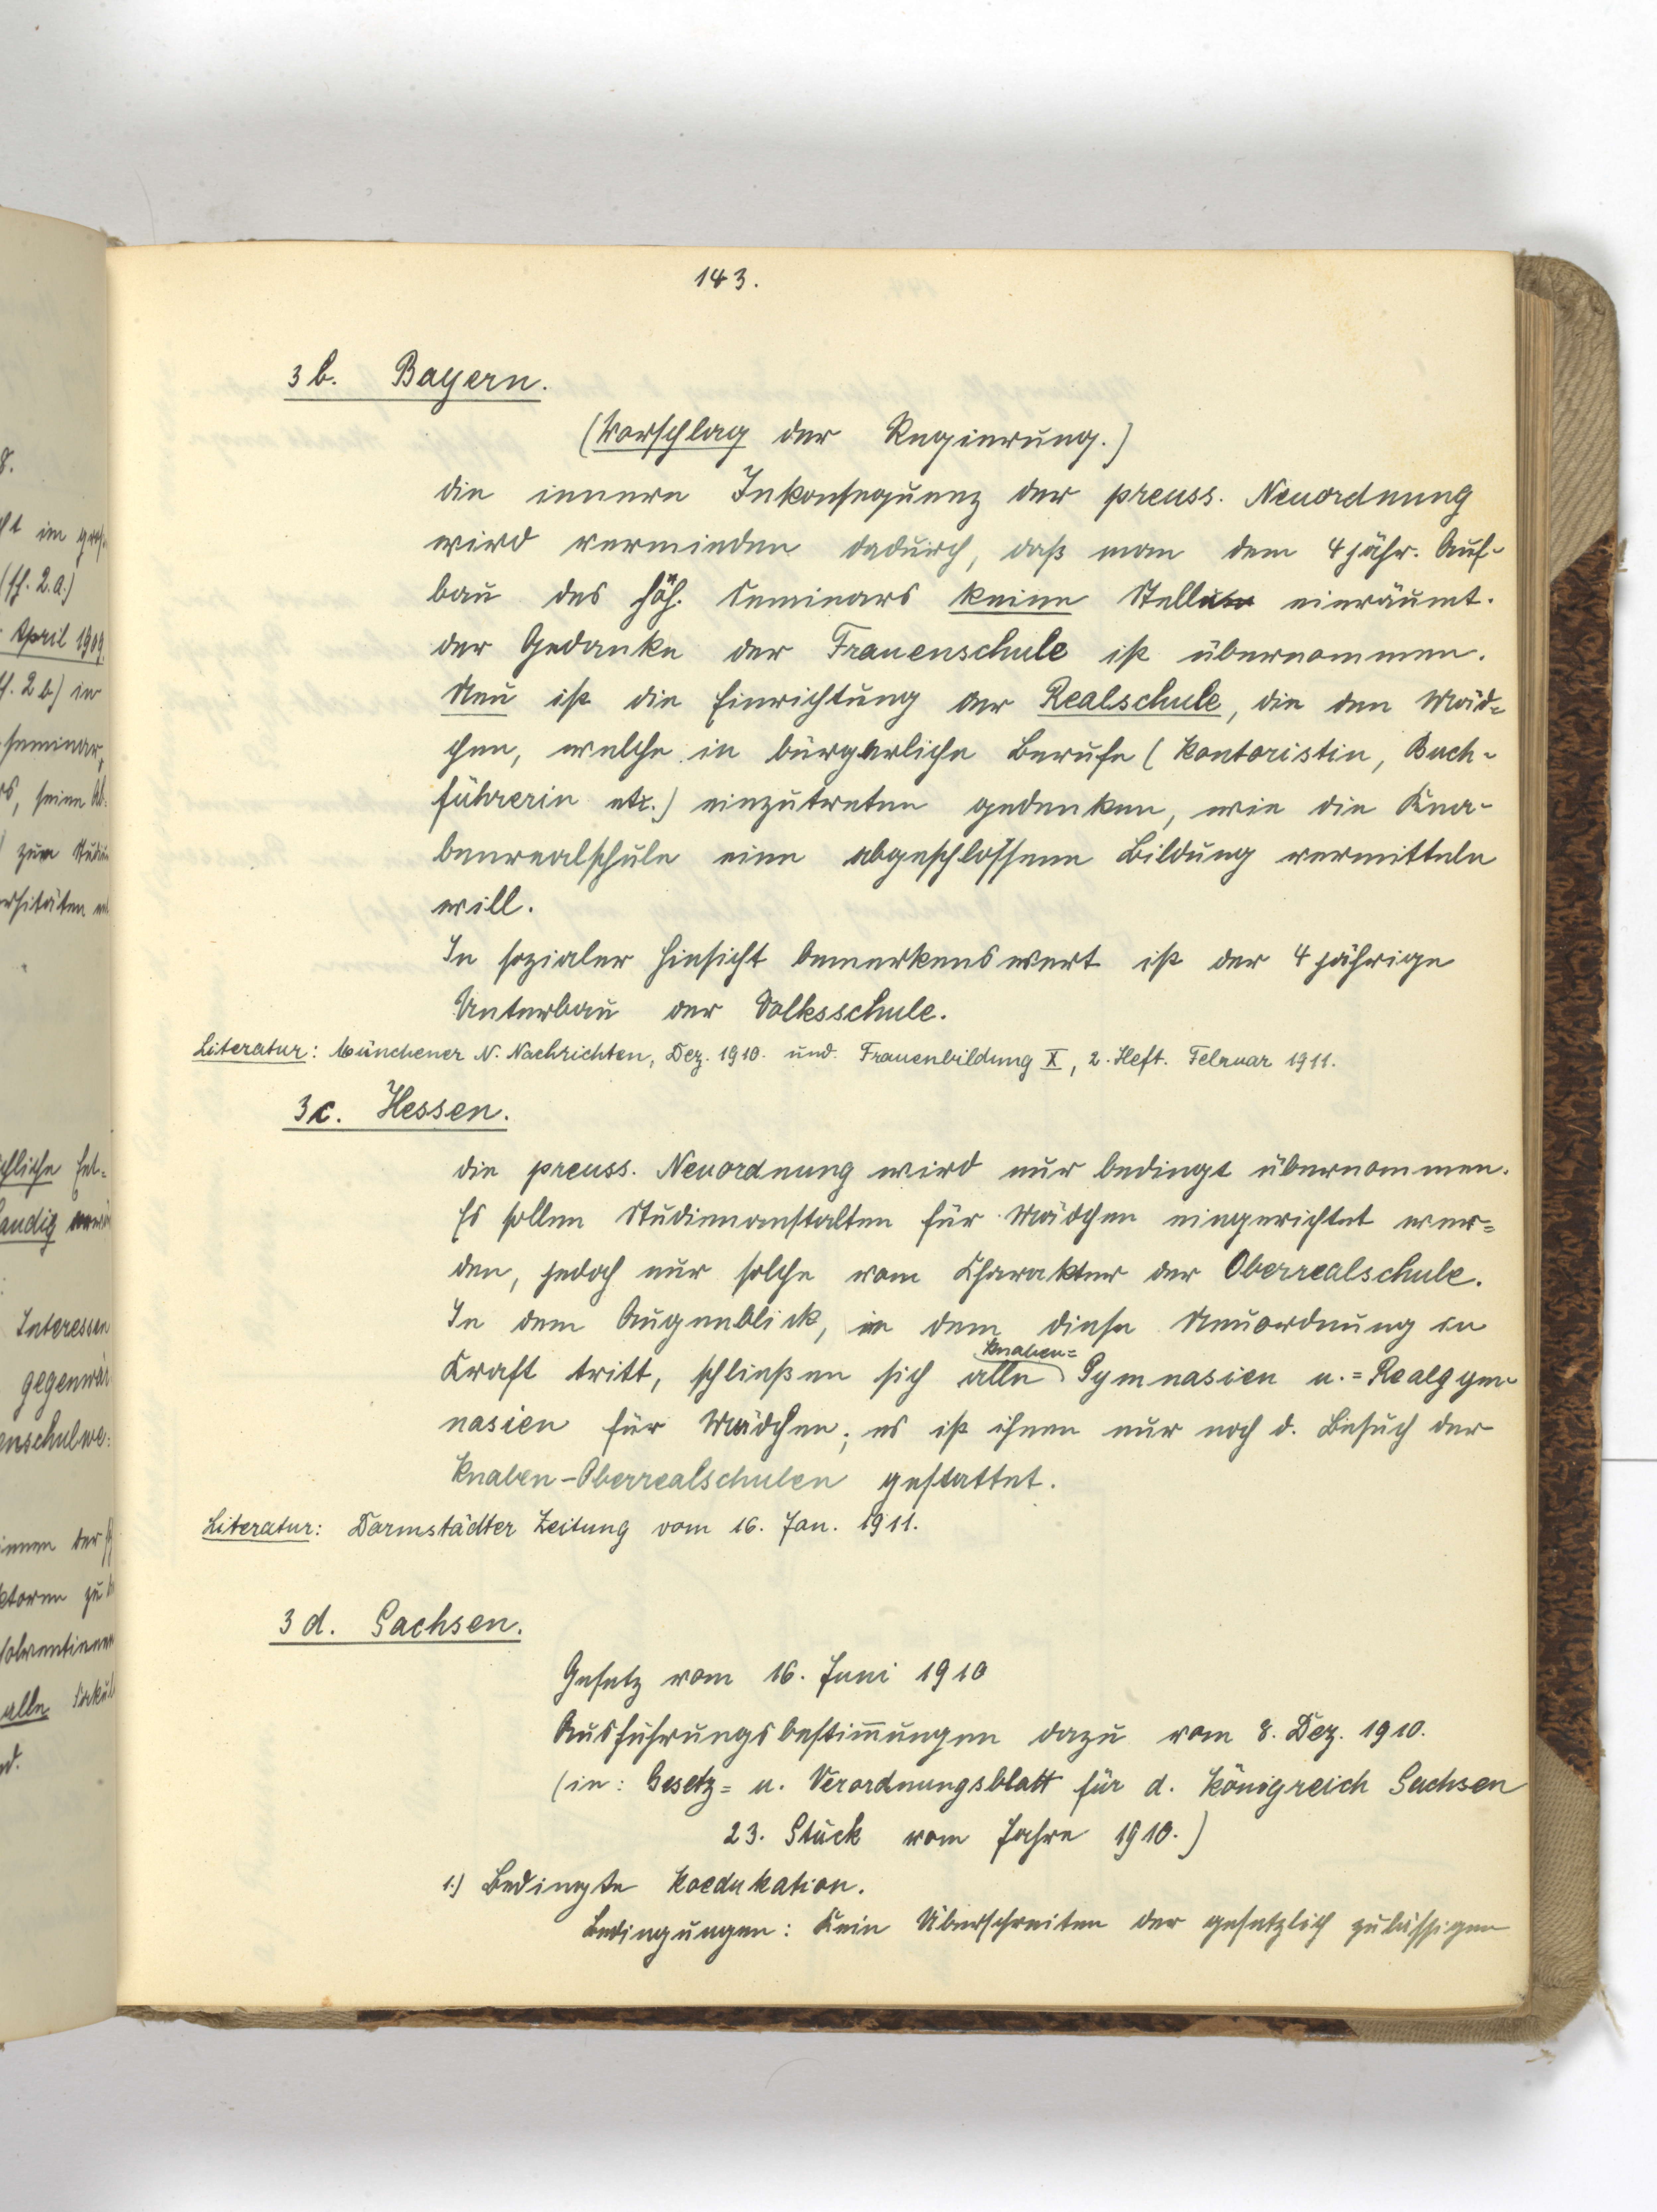 143.
3 b. Bayern.
(Vorschlag der Regierung.)
Die innere Inkonsequenz der preuss. Neuordnung
wird vermieden dadurch, daß man dem 4 jähr. Auf-
bau des höh. Seminars keine Stelle einräumt.
Der Gedanke der Frauenschule ist übernommen.
Neu ist die Einrichtung der Realschule, die den Mäd=
chen, welche in bürgerliche Berufe (Kontoristin, Buch-
führerin etc.) einzutreten gedenken, wie die Kna-
benrealschule eine abgeschlossene Bildung vermitteln
will.
In sozialer Hinsicht bemerkenswert ist der 4 jährige
Unterbau der Volksschule.
Literatur: Münchener N. Nachrichten, Dez. 1910. und Frauenbildung X, 2. Heft. Februar 1911.
3c. Hessen.
Die preuss. Neuordnung wird nur bedingt übernommen.
Es sollen Studienanstalten für Mädchen eingerichtet wer=
den, jedoch nur solche vom Charakter der Oberrealschule.
In dem Augenblick, in dem diese Neuordnung in
Knaben=
Kraft tritt, schließen sich alle Gymnasien u. =Realgym-
nasien für Mädchen; es ist ihnen nur noch d. Besuch der
Knaben-Oberrealschulen gestattet.
Literatur: Darmstädter Zeitung vom 16. Jan. 1911.
3 d. Sachsen.
Gesetz vom 16. Juni 1910
Ausführungsbestim̅ungen dazu vom 8. Dez. 1910.
(in: Gesetz= u. Verordnungsblatt für d. Königreich Sachsen
23. Stück vom Jahre 1910.)
1.) Bedingte Koedukation.
Bedingungen: Kein Überschreiten der gesetzlich zulässigen
8.
(sh. 2.a.)
April 1909
2 b) in
seminar,
seine
zum
Interessen
gegenwär
enschulwe:
zu
alle